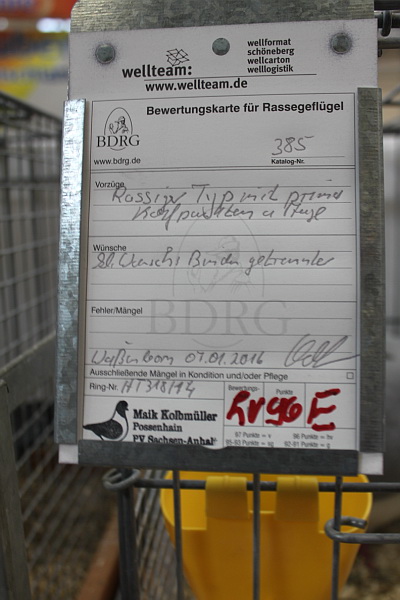 wellteam:
wellformat
schöneberg
wellcarton
welllogistik
www.wellteam.de
BDRG
www.bdrg.de
Bewertungskarte für Rassegeflügel
385
Katalog-Nr.
Vorzüge
Rassiger Typ mit prima
Kopfpunkten
Wünsche
Binden getrennter
BDRG
Fehler/Mängel
07.01.2016
Ausschließende Mängel in Kondition und/oder Pflege
Ring-Nr. AT318/14
Bewertungs-
Punkte
hv 96 E
Maik Kolbmüller
Possenhain
PV Sachsen-Anhalt
97 Punkte = v
96 Punkte = hv
93-95 Punkte = sg